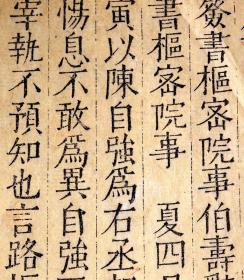 簽書樞密院事伯壽
書樞密院事 夏四月
寅以陳自強爲右丞
惕息不敢爲異自強
宰執不預知也言路